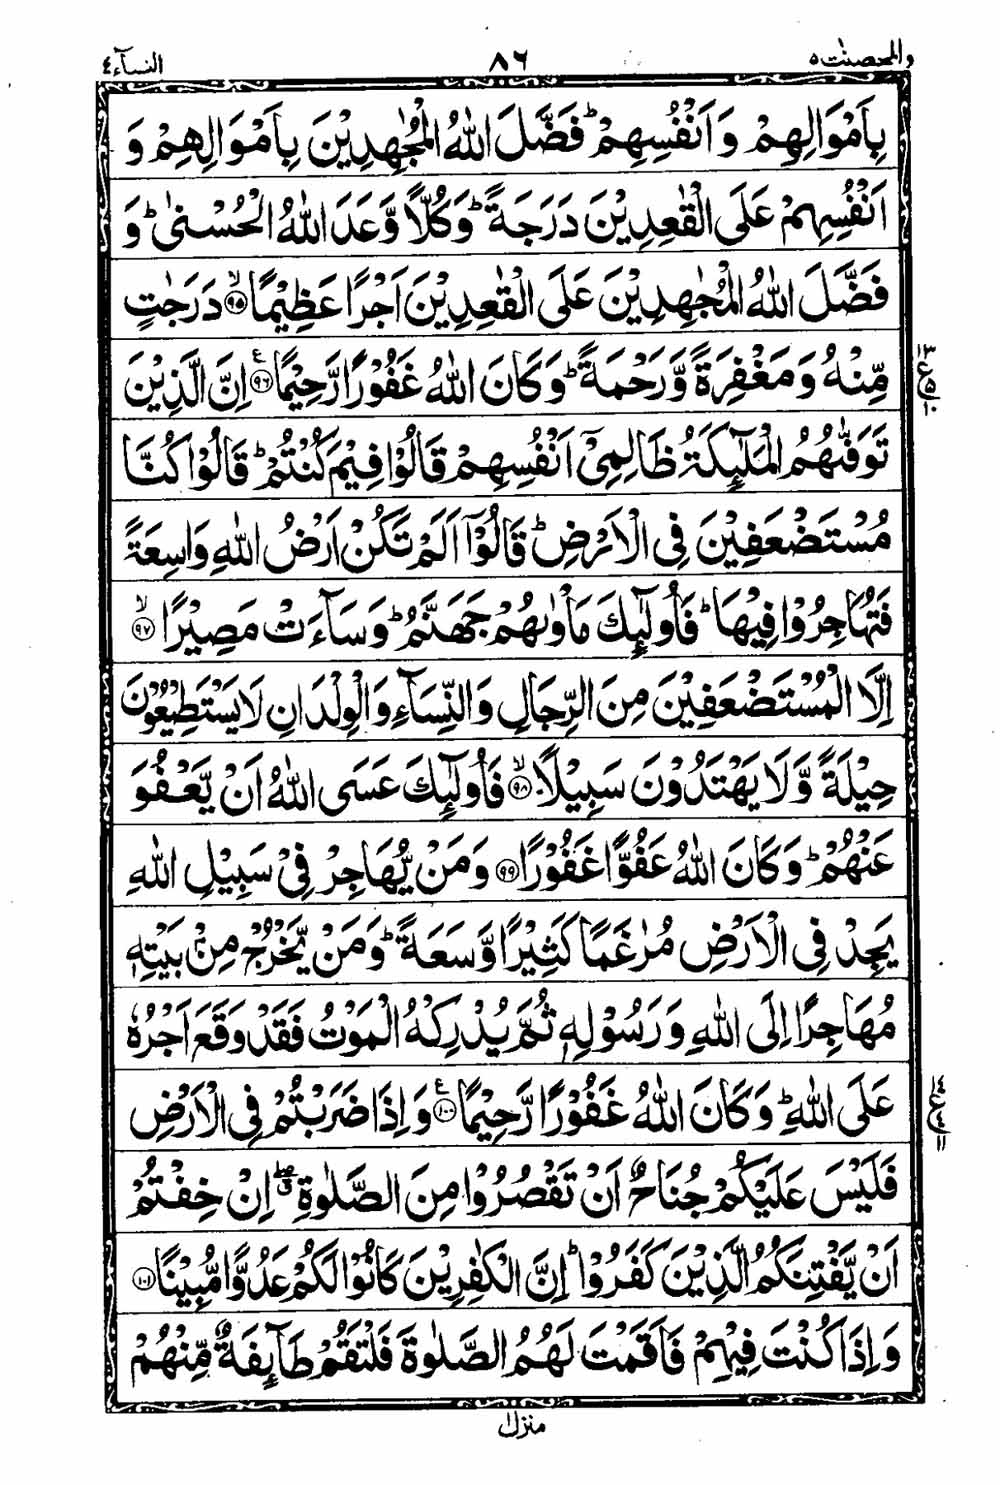 والمحصنٰت ٥ ٨٦ النسآء ٤
بِاَمْوَالِهِمْ وَاَنْفُسِهِمْ ؕ فَضَّلَ اللّٰهُ الْمُجٰهِدِيْنَ بِاَمْوَالِهِمْ وَ
اَنْفُسِهِمْ عَلَى الْقٰعِدِيْنَ دَرَجَةً ؕ وَكُلًّا وَّعَدَ اللّٰهُ الْحُسْنٰى ؕ وَ
فَضَّلَ اللّٰهُ الْمُجٰهِدِيْنَ عَلَى الْقٰعِدِيْنَ اَجْرًا عَظِيْمًا ۙ‏﴿٩٥﴾ دَرَجٰتٍ
مِّنْهُ وَمَغْفِرَةً وَّرَحْمَةً ؕ وَكَانَ اللّٰهُ غَفُوْرًا رَّحِيْمًا ﴿٩٦﴾ ع اِنَّ الَّذِيْنَ
تَوَفّٰٮهُمُ الْمَلٰٓئِكَةُ ظَالِمِىْۤ اَنْفُسِهِمْ قَالُوْا فِيْمَ كُنْتُمْ ؕ قَالُوْا كُنَّا
مُسْتَضْعَفِيْنَ فِى الْاَرْضِ ؕ قَالُوْۤا اَلَمْ تَكُنْ اَرْضُ اللّٰهِ وَاسِعَةً
فَتُهَاجِرُوْا فِيْهَا ؕ فَاُولٰٓئِكَ مَاْوٰٮهُمْ جَهَنَّمُ ؕ وَسَآءَتْ مَصِيْرًا ۙ‏﴿٩٧﴾
اِلَّا الْمُسْتَضْعَفِيْنَ مِنَ الرِّجَالِ وَالنِّسَآءِ وَالْوِلْدَانِ لَا يَسْتَطِيْعُوْنَ
حِيْلَةً وَّلَا يَهْتَدُوْنَ سَبِيْلًا ۙ‏﴿٩٨﴾ فَاُولٰٓئِكَ عَسَى اللّٰهُ اَنْ يَّعْفُوَ
عَنْهُمْ ؕ وَكَانَ اللّٰهُ عَفُوًّا غَفُوْرًا ﴿٩٩﴾ وَمَنْ يُّهَاجِرْ فِىْ سَبِيْلِ اللّٰهِ
يَجِدْ فِى الْاَرْضِ مُرٰغَمًا كَثِيْرًا وَّسَعَةً ؕ وَمَنْ يَّخْرُجْ مِنْۢ بَيْتِهٖ
مُهَاجِرًا اِلَى اللّٰهِ وَرَسُوْلِهٖ ثُمَّ يُدْرِكْهُ الْمَوْتُ فَقَدْ وَقَعَ اَجْرُهٗ
عَلَى اللّٰهِ ؕ وَكَانَ اللّٰهُ غَفُوْرًا رَّحِيْمًا ﴿١٠٠﴾ ع وَاِذَا ضَرَبْتُمْ فِى الْاَرْضِ
فَلَيْسَ عَلَيْكُمْ جُنَاحٌ اَنْ تَقْصُرُوْا مِنَ الصَّلٰوةِ ۖق اِنْ خِفْتُمْ
اَنْ يَّفْتِنَكُمُ الَّذِيْنَ كَفَرُوْا ؕ اِنَّ الْكٰفِرِيْنَ كَانُوْا لَكُمْ عَدُوًّا مُّبِيْنًا ﴿١٠١﴾
وَاِذَا كُنْتَ فِيْهِمْ فَاَقَمْتَ لَهُمُ الصَّلٰوةَ فَلْتَقُمْ طَآئِفَةٌ مِّنْهُمْ
منزل ١